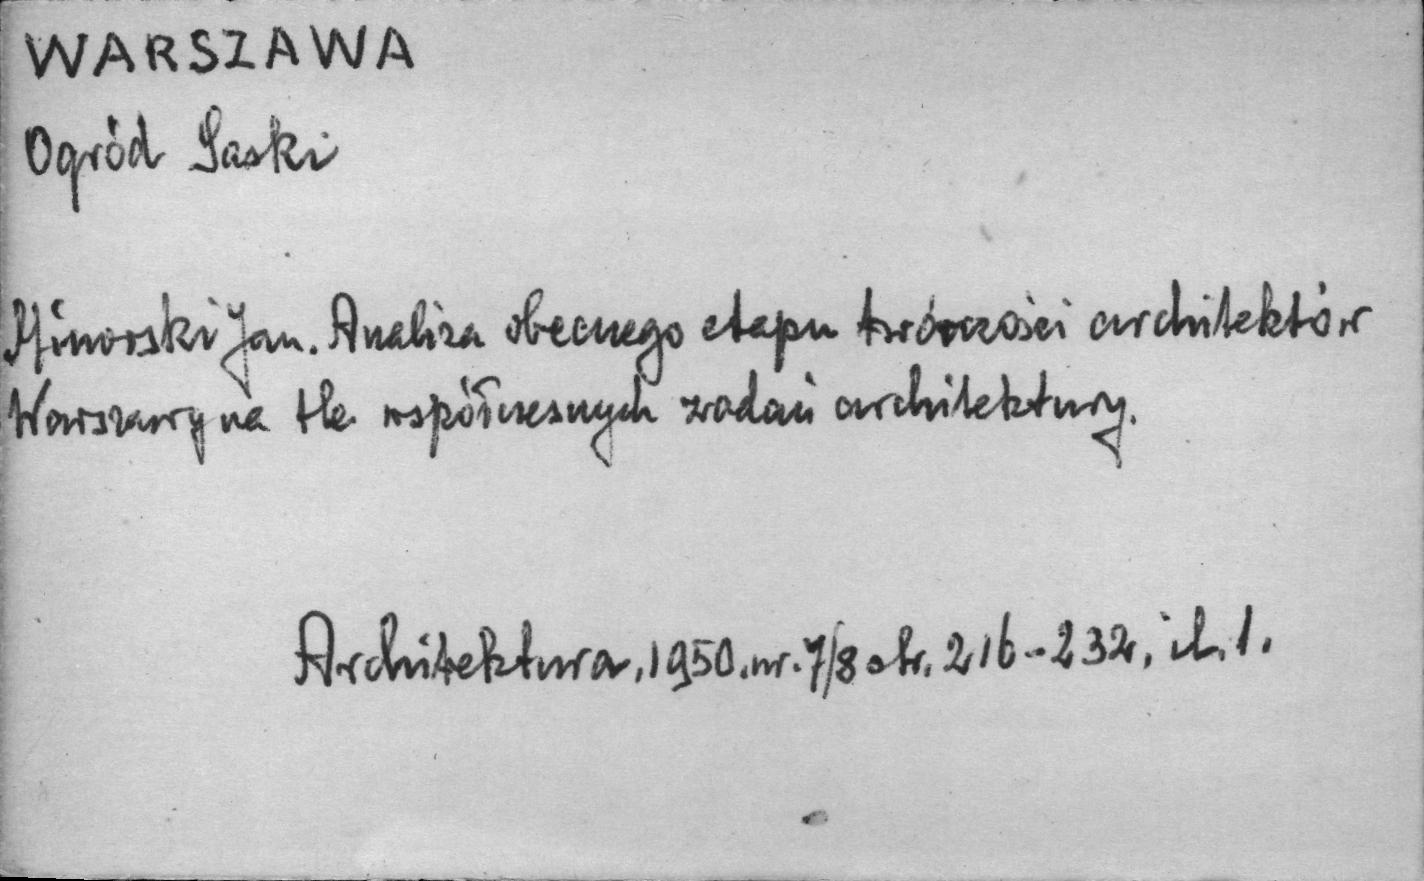 WARSZAWA
Ogród Saski
Minorski Jan. Analiza obecnego etapu twórczości architektów
Warszawy na tle współczesnych zadań architektury.
Architektura, 1950. nr. 7/8 str. 216-232, il. 1.